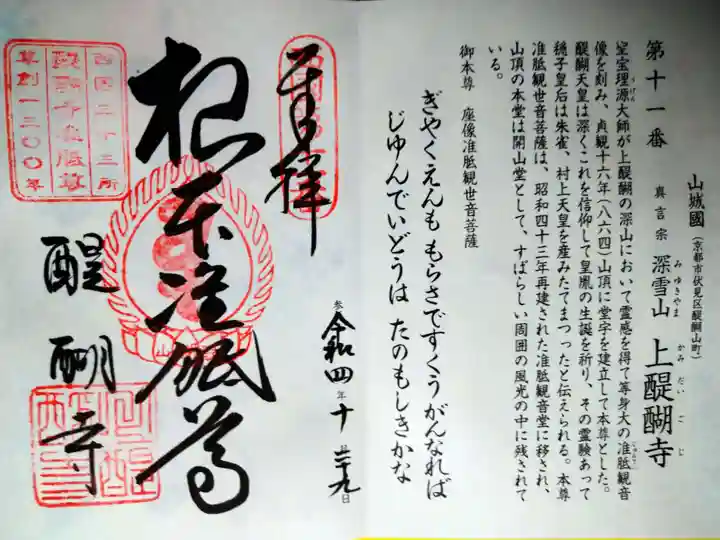 山城國(京都市伏見区醍醐山町)
第十一番 真言宗 深雪山 上醍醐寺
みゆきやま かみだいごじ
聖宝理源大師が上醍醐の深山において霊感を得て等身大の准胝観音
りげん
像を刻み、貞観十六年(八六四)山頂に堂宇を建立して本尊とした。
醍醐天皇は深くこれを信仰して皇胤の生誕を祈り、その霊験あって
穏子皇后は朱雀、村上天皇を産みたてまつったと伝えられる。本尊
准胝観世音菩薩は、昭和四十三年再建された准胝観音堂に移され、
山頂の本堂は開山堂として、すばらしい周囲の風光の中に残されて
いる。
御本尊 座像准胝観世音菩薩
ぎやくえんも もらさですくうがんなれば
じゅんでいどうは たのもしきかな
奉拝
参 令和四年十月廿九日
根本准胝尊
醍醐寺
西国三十三所
醍醐寺准胝尊
草創一三〇〇年